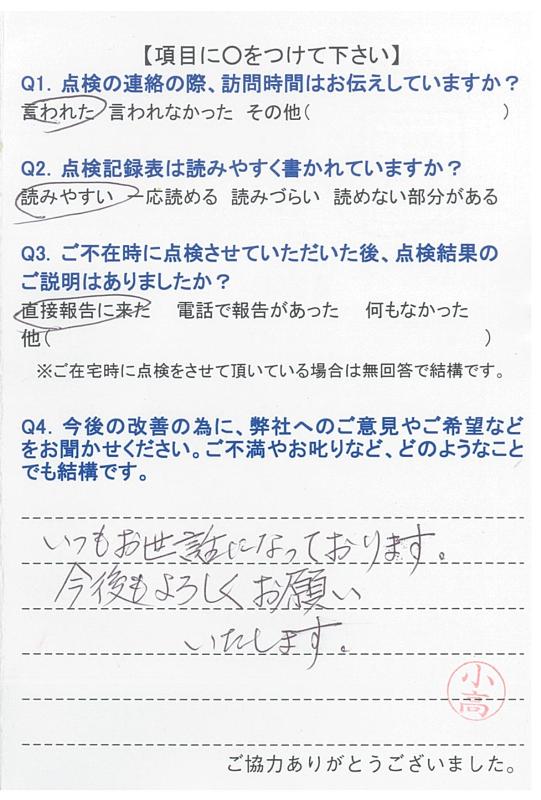 【項目に〇をつけて下さい】
Q1. 点検の連絡の際、訪問時間はお伝えしていますか？
言われた 言われなかった その他（ ）
Q2. 点検記録表は読みやすく書かれていますか？
読みやすい 一応読める 読みづらい 読めない部分がある
Q3. ご不在時に点検させていただいた後、点検結果の
ご説明はありましたか？
直接報告に来た 電話で報告があった 何もなかった
他（ ）
※ご在宅時に点検をさせて頂いている場合は無回答で結構です。
Q4. 今後の改善の為に、弊社へのご意見やご希望など
をお聞かせください。ご不満やお叱りなど、どのようなこと
でも結構です。
いつもお世話になっております。
今後もよろしくお願い
いたします。
小高
ご協力ありがとうございました。